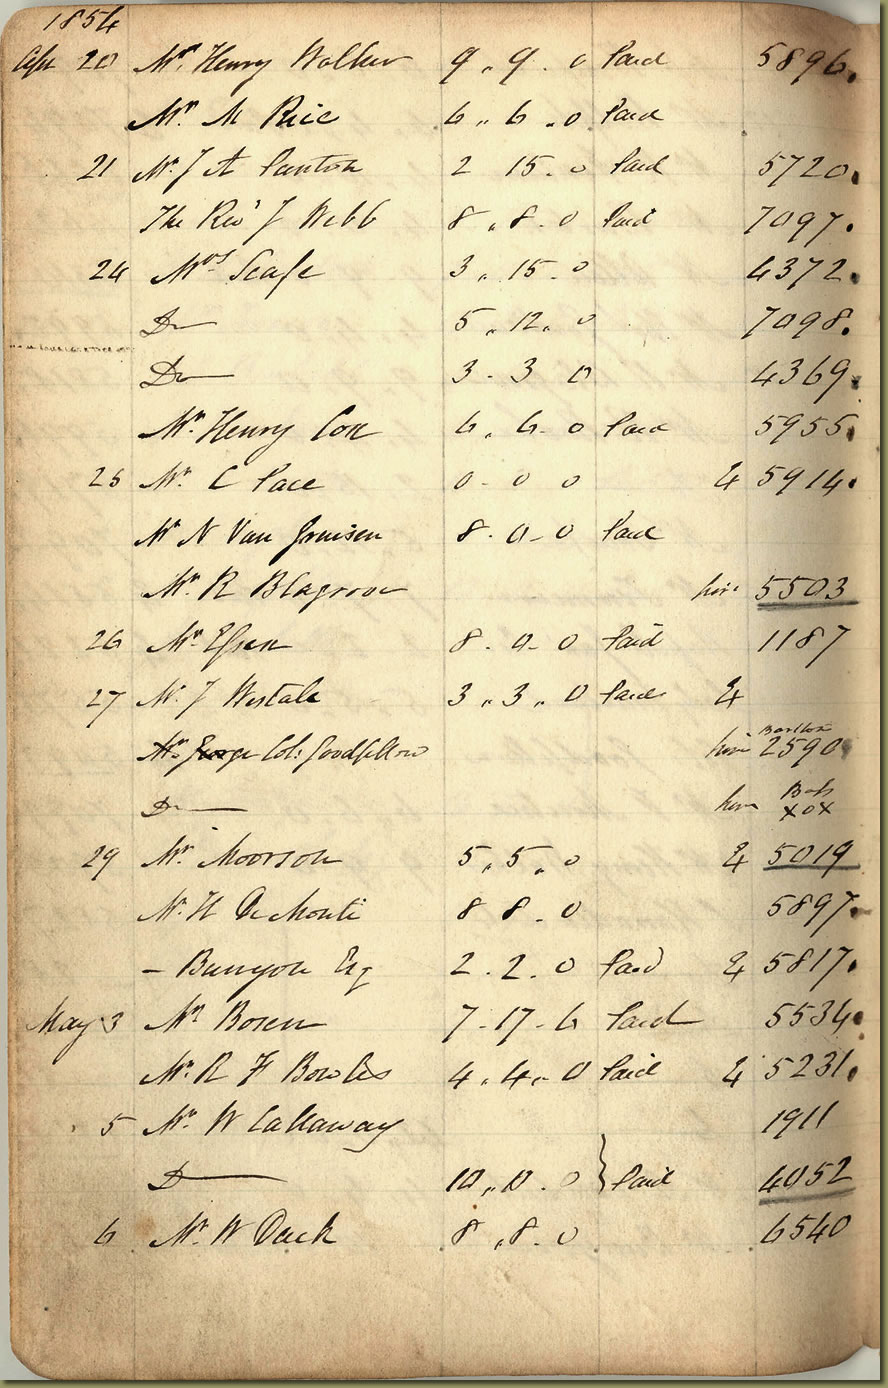 1854
Apr 20 Mr. Henry Walker 9 „ 9 . 0 Paid 5896.
Mr. M Rice 6 „ 6 „ 0 Paid
21 Mr. J A Panton 2 15 . 0 Paid 5720.
The Revd J Webb 8 „ 8 . 0 Paid 7097.
24 Mrs Scafe 3 „ 15 . 0 4372.
Do 5 „ 12 „ 0 7098.
Do 3 . 3 0 4369.
Mr. Henry Cox 6 „ 6 . 0 Paid 5955.
25 Mr. C Pace 0 - 0 0 5914.
Mr N Van Gruisen 8 . 0 - 0 Paid
Mr. R Blagrove hire 5503
26 Mr. 8 . 0 . 0 Paid 1187
27 Mr. J Westale 3 „ 3 „ 0 Paid
Col: Goodfellow hire 2590
Do hire xox
29 Mr. Moorson 5 „ 5 „ 0 5019
Mr. H De Monti 8 8 . 0 5897.
– Bunyon Esq 2 . 2 . 0 Paid 5817.
May 3 Mr Bosen 7 - 17 - 6 Paid 5534.
Mr. R F Bowles 4 „ 4 „ 0 Paid 5231.
5 Mr. W Callaway 1911
Do 10 „ 10 . 0 } Paid 4052
6 Mr. W Dack 8 „ 8 . 0 6540